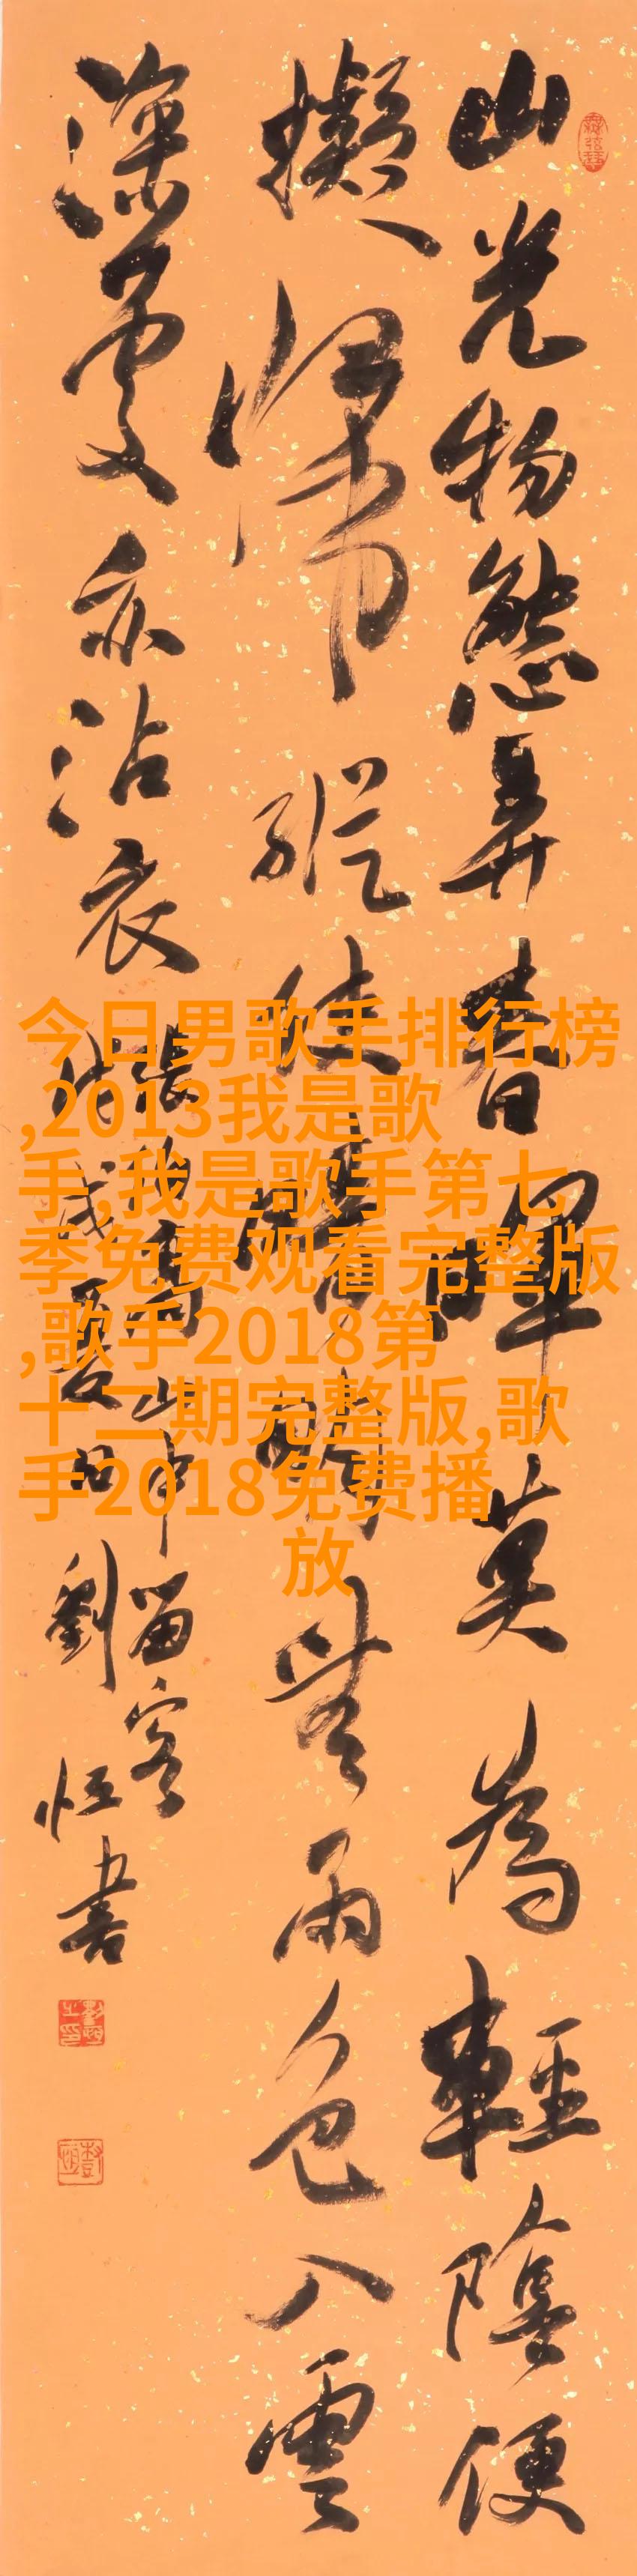 山光物態弄春暉莫為輕陰便
擬歸縱使晴明無雨色入雲
深處亦沾衣
張伯高山中留客
戌夏劉恒書
今日男歌手排行榜
,2013我是歌
手,我是歌手第七
季免费观看完整版
,歌手2018第
十二期完整版,歌
手2018免费播
放